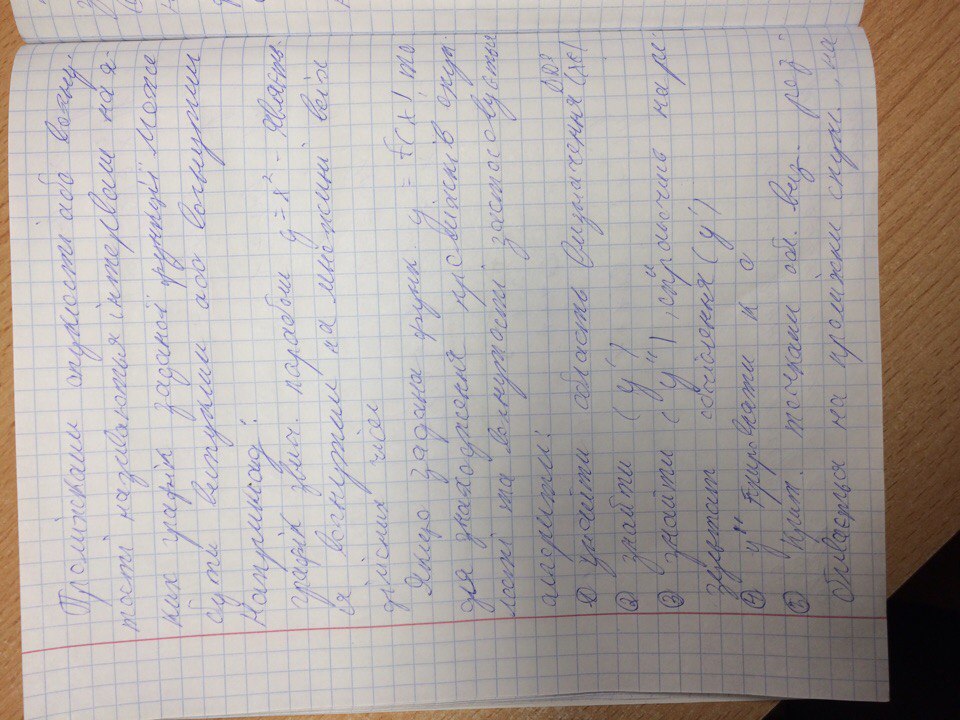 Проміжками опуклості або вогну-
тості називаються інтервали на я-
ких графік заданої функції може
бути випуклим або вогнутим
Наприклад:
графік звич. параболи y = x² - являєть-
ся вогнутим на множині всіх
дійсних чісел
Якщо задана функ. y = f(x) то
для знаходження проміжків опук-
лості та вогнутості застосовується
алгоритм:
① знайти область визначення (xє)
② знайти (y')
③ знайти (y''), опіраючись на ре-
зультат обчіслення (y')
④ y'' прирівняти к 0
⑤ Крит. точками обл. виз. роз-
бивається на проміжки опук. на